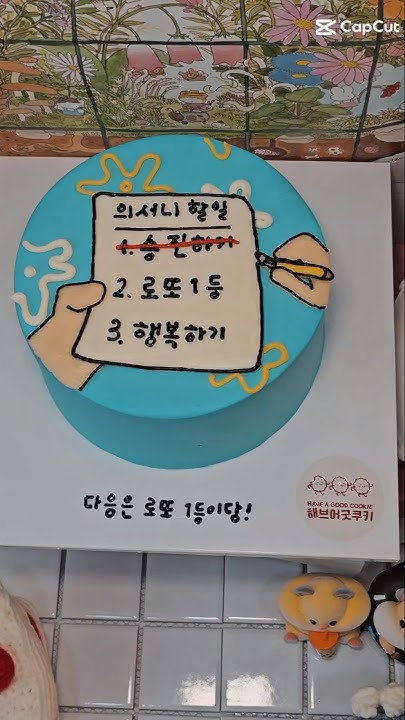 CapCut
의서니 할일
1. 승진하기
2. 로또 1등
3. 행복하기
다음은 로또 1등이당!
HAVE A GOOD COOKIE
해브어굿쿠키